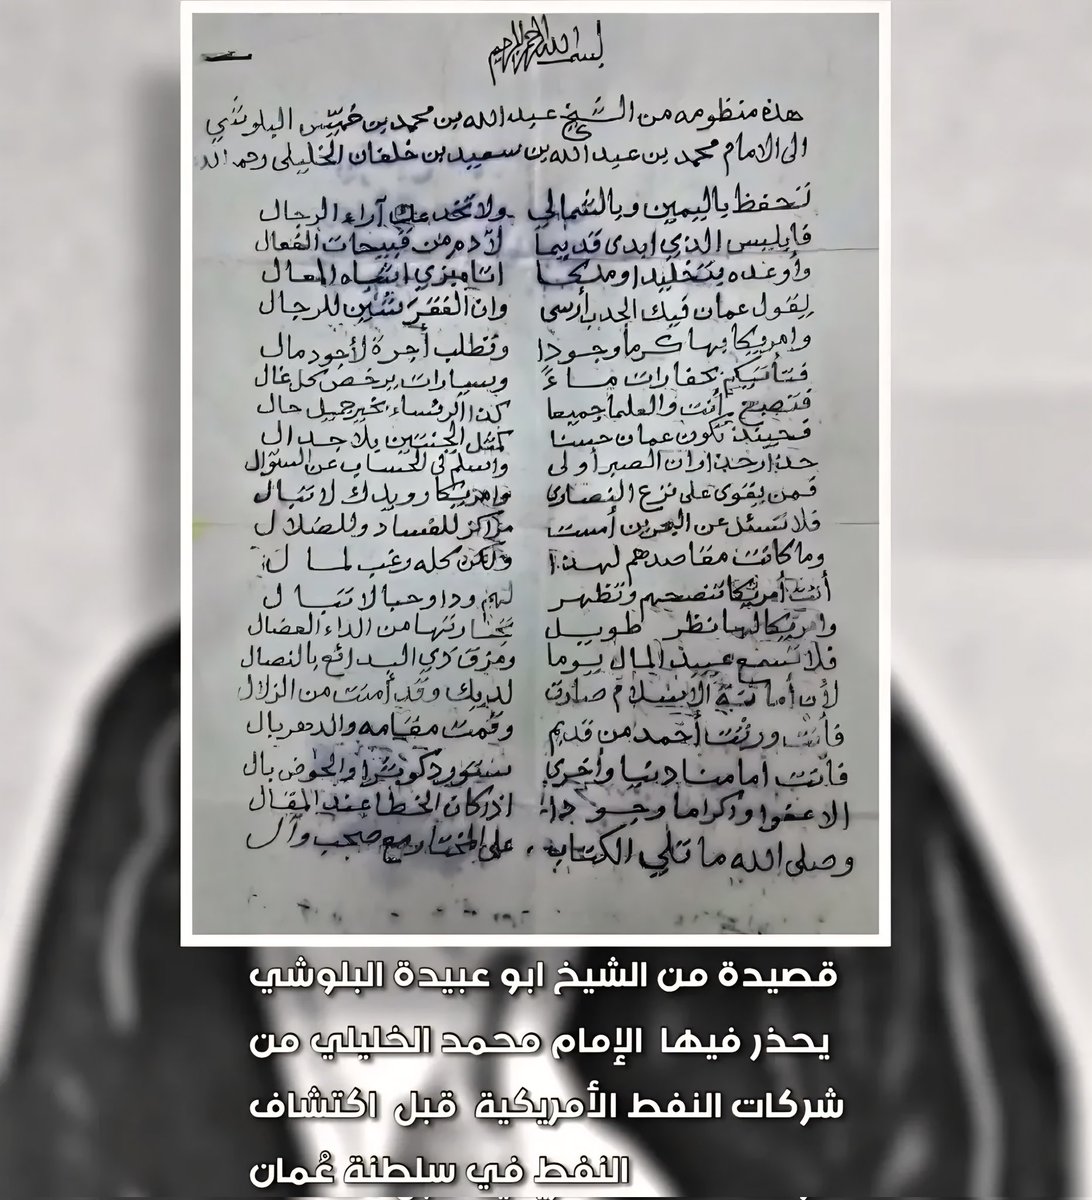 بسم الله الرحمن الرحيم
هذه منظومه من الشيخ عبد الله بن محمد بن خميس البلوشي
الى الامام محمد بن عبد الله بن سعيد بن خلفان الخليلي رحمه الله
تحفظ باليمين وبالشمالي ولا تخدعك آراء الرجال
فابليس الذي ابدى قديما لآدم من قبيحات الفعال
وأوعده بتخليد او ملكا المعال
يقول عمان فيك الجدب أرسى وان الفقر شين للرجال
وامريكا بها كرما وجودا وتطلب أجرة لأجود مال
فتأتيكم بحفارات ماء وسيارات يرخص كل غال
فتصبح أنت والعلما جميعا كذا الرئساء بخير جميل حال
فحينئذ تكون عمان حسنا كمثل الجنتين بلا جدال
حذارحذاران الصبر أولى واسلم في الحساب عن السؤال
فمن يقوى على نزع النصارى وامريكا رويدك لا تبال
فلا تسئل عن البحرين أمست مراكز للفساد وللضلال
وما كانت مقاصدهم لهذا ولكن كله رغب لمال
أتت أمريكا تنصحهم وتظهر لهم ودا وحبا لا تبال
وامريكا لها نظر طويل تجارتها من الداء العضال
فلا تسمع عبيد المال يوما ومزق ذي البدائع بالنصال
لأن أمانة الاسلام صارت لديك وقد أمنت من الزلال
فأنت ورثت أحمد من قديم وقمت مقامه والدهر بال
فأنت امامنا دنيا وأخرى ستورد كوثرا والحوض بال
الا عفوا واكراما وجودا اذا كان الخطا عند المقال
وصلى الله ما تلي الكتاب على المختار مع صحب وآل
قصيدة من الشيخ ابو عبيدة البلوشي
يحذر فيها الإمام محمد الخليلي من
شركات النفط الأمريكية قبل اكتشاف
النفط في سلطنة عُمان